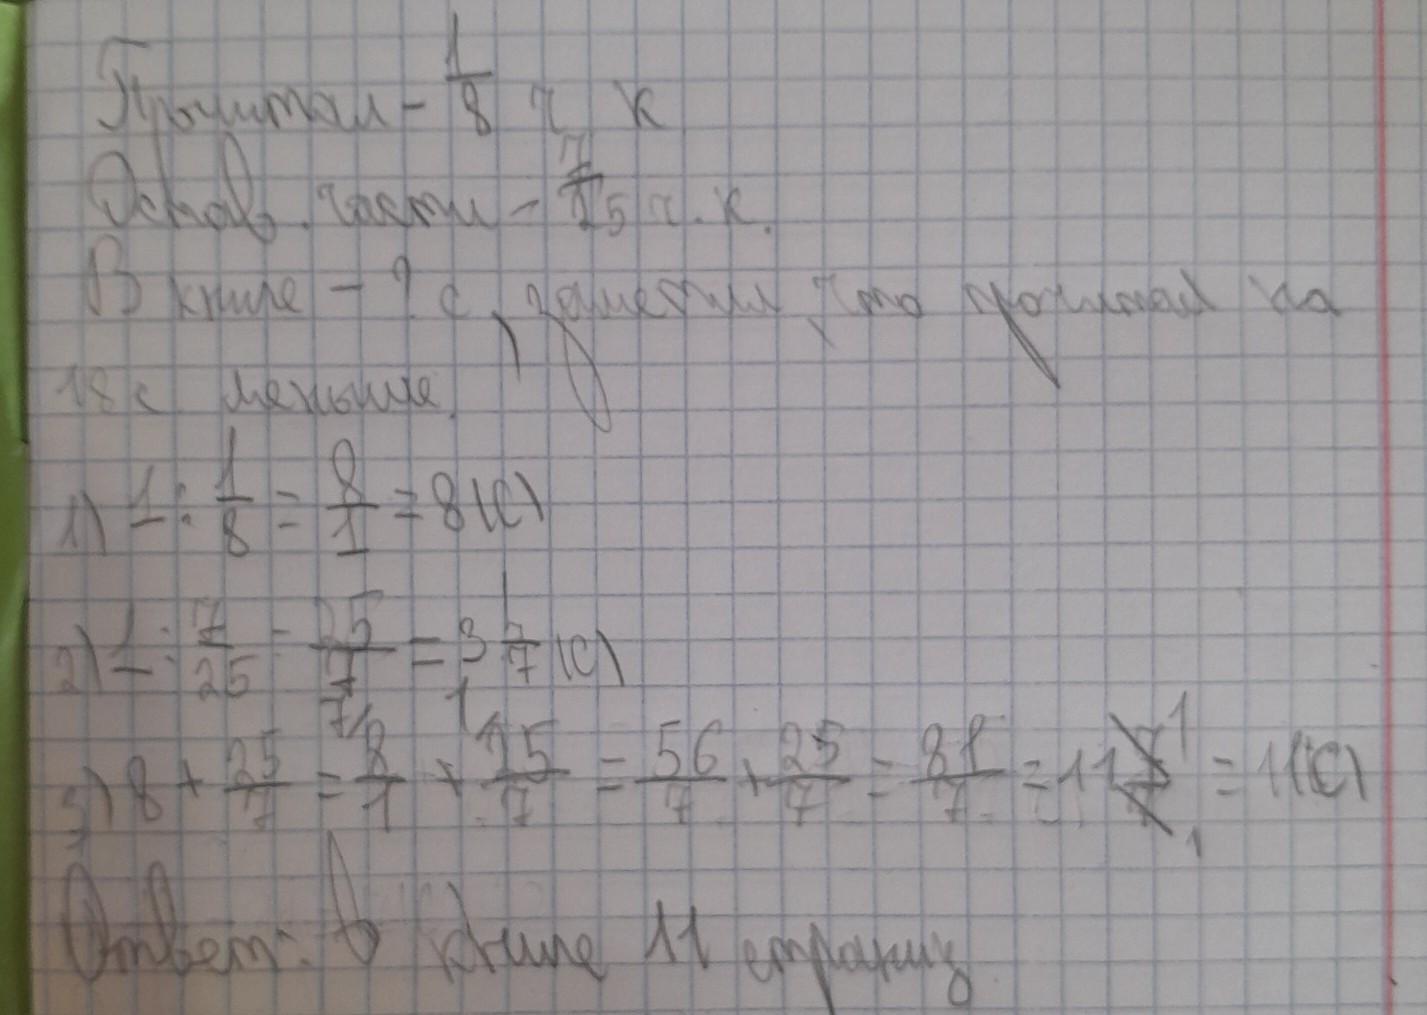 Прочитал - 1/8 ч к
Остав. части - 7/25 ч. к.
В книге - ? с, заметил, что прочитал на
18с меньше.
1) 1 : 1/8 = 8/1 = 8 (с)
2) 1 : 7/25 = 25/7 = 3 4/7 (с)
3) 8 + 25/7 = 8/1 + 25/7 = 56/7 + 25/7 = 81/7 = 11 7/7 = 11 (с)
Ответ: в книге 11 страниц